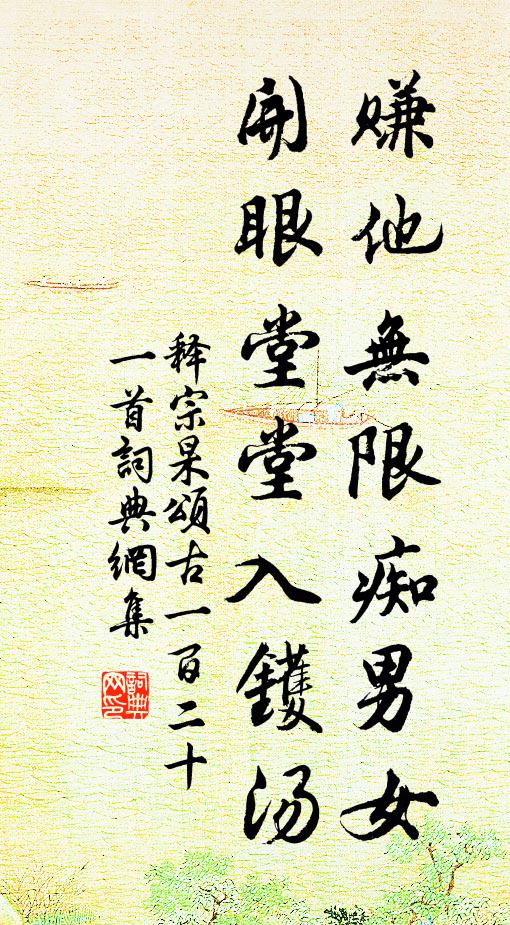 赚他無限痴男女
開眼堂堂入鑊汤
释宗杲頌古一百二十
一首詞典網集
詞典网印